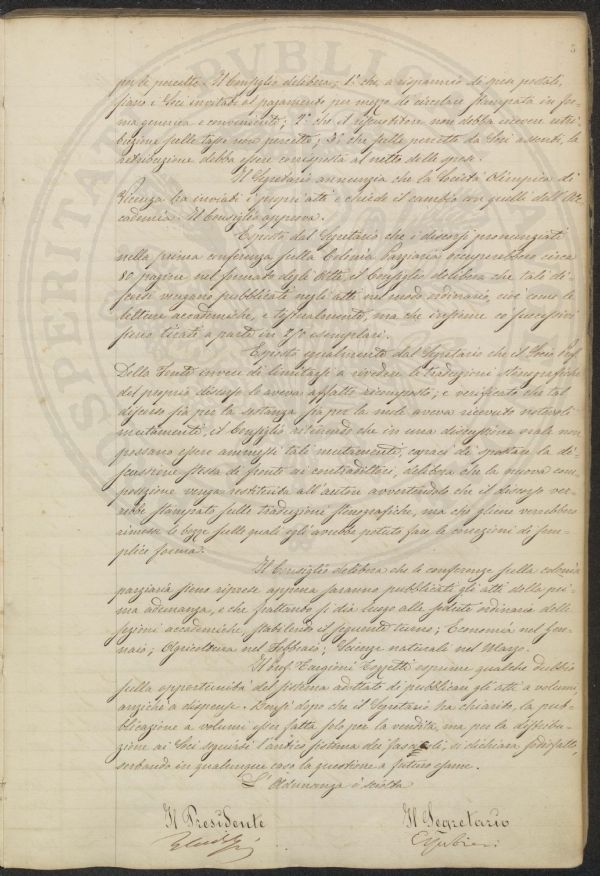 5
per le percette. Il Consiglio delibera, 1º che, a risparmio di spesa postale,
siano i Soci invitati al pagamento per mezzo di circolare stampata in for-
ma generica e conveniente; 2º che il riscuotitore non debba ricevere retri-
buzione sulle tasse non percette; 3º che sulle percette da Soci assenti, la
retribuzione debba essere corrisposta al netto delle spese.
Il Segretario annunzia che la Società Olimpica di
Vicenza ha inviati i propri atti e chiede il cambio con quelli dell'Ac-
cademia. Il Consiglio approva.
Esposto dal Segretario che i discorsi pronunziati
nella prima conferenza sulla Colonia Parziaria occuperebbero circa
80 pagine nel formato degli Atti, il Consiglio delibera che tali di-
scorsi vengano pubblicati negli atti nel modo ordinario, cioè come le
letture accademiche, e testualmente, ma che insieme coi successivi
sieno tirati a parte in 250 esemplari.
Esposto egualmente dal Segretario che il Socio Prof.
Della Fonte invece di limitarsi a rivedere la traduzione stenografica
del proprio discorso lo aveva affatto ricomposto; e verificato che tal
discorso sia per la sostanza sia per la mole aveva ricevuto notevoli
mutamenti, il Consiglio ritenendo che in una discussione orale non
possano essere ammessi tali mutamenti, capaci di spostare la di-
scussione stessa di fronte ai contradittori, delibera che la nuova com-
posizione venga restituita all'autore avvertendolo che il discorso ver-
rebbe stampato sulla traduzione stenografica, ma che gliene verrebbero
rimesse le bozze sulle quali egli avrebbe potuto fare le correzioni di sem-
plice forma.
Il Consiglio delibera che le conferenze sulla colonia
parziaria sieno riprese appena saranno pubblicati gli atti della pri-
ma adunanza, e che frattanto si dia luogo alle sedute ordinarie delle
sezioni accademiche stabilendo il seguente turno; Economia nel Gen-
naio; Agricoltura nel Febbraio; Scienze naturali nel Marzo.
Il Prof. Targioni Tozzetti esprime qualche dubbio
sulla opportunità del sistema adottato di pubblicare gli atti a volumi,
anziché a dispense. Bensì dopo che il Segretario ha chiarito, la pub-
blicazione a volumi esser fatta solo per la vendita, ma per la distribu-
zione ai Soci seguirsi l'antico sistema dei fascicoli, si dichiara sodisfatto,
serbando in qualunque caso la questione a futuro esame.
L'Adunanza è sciolta
Il Presidente Il Segretario